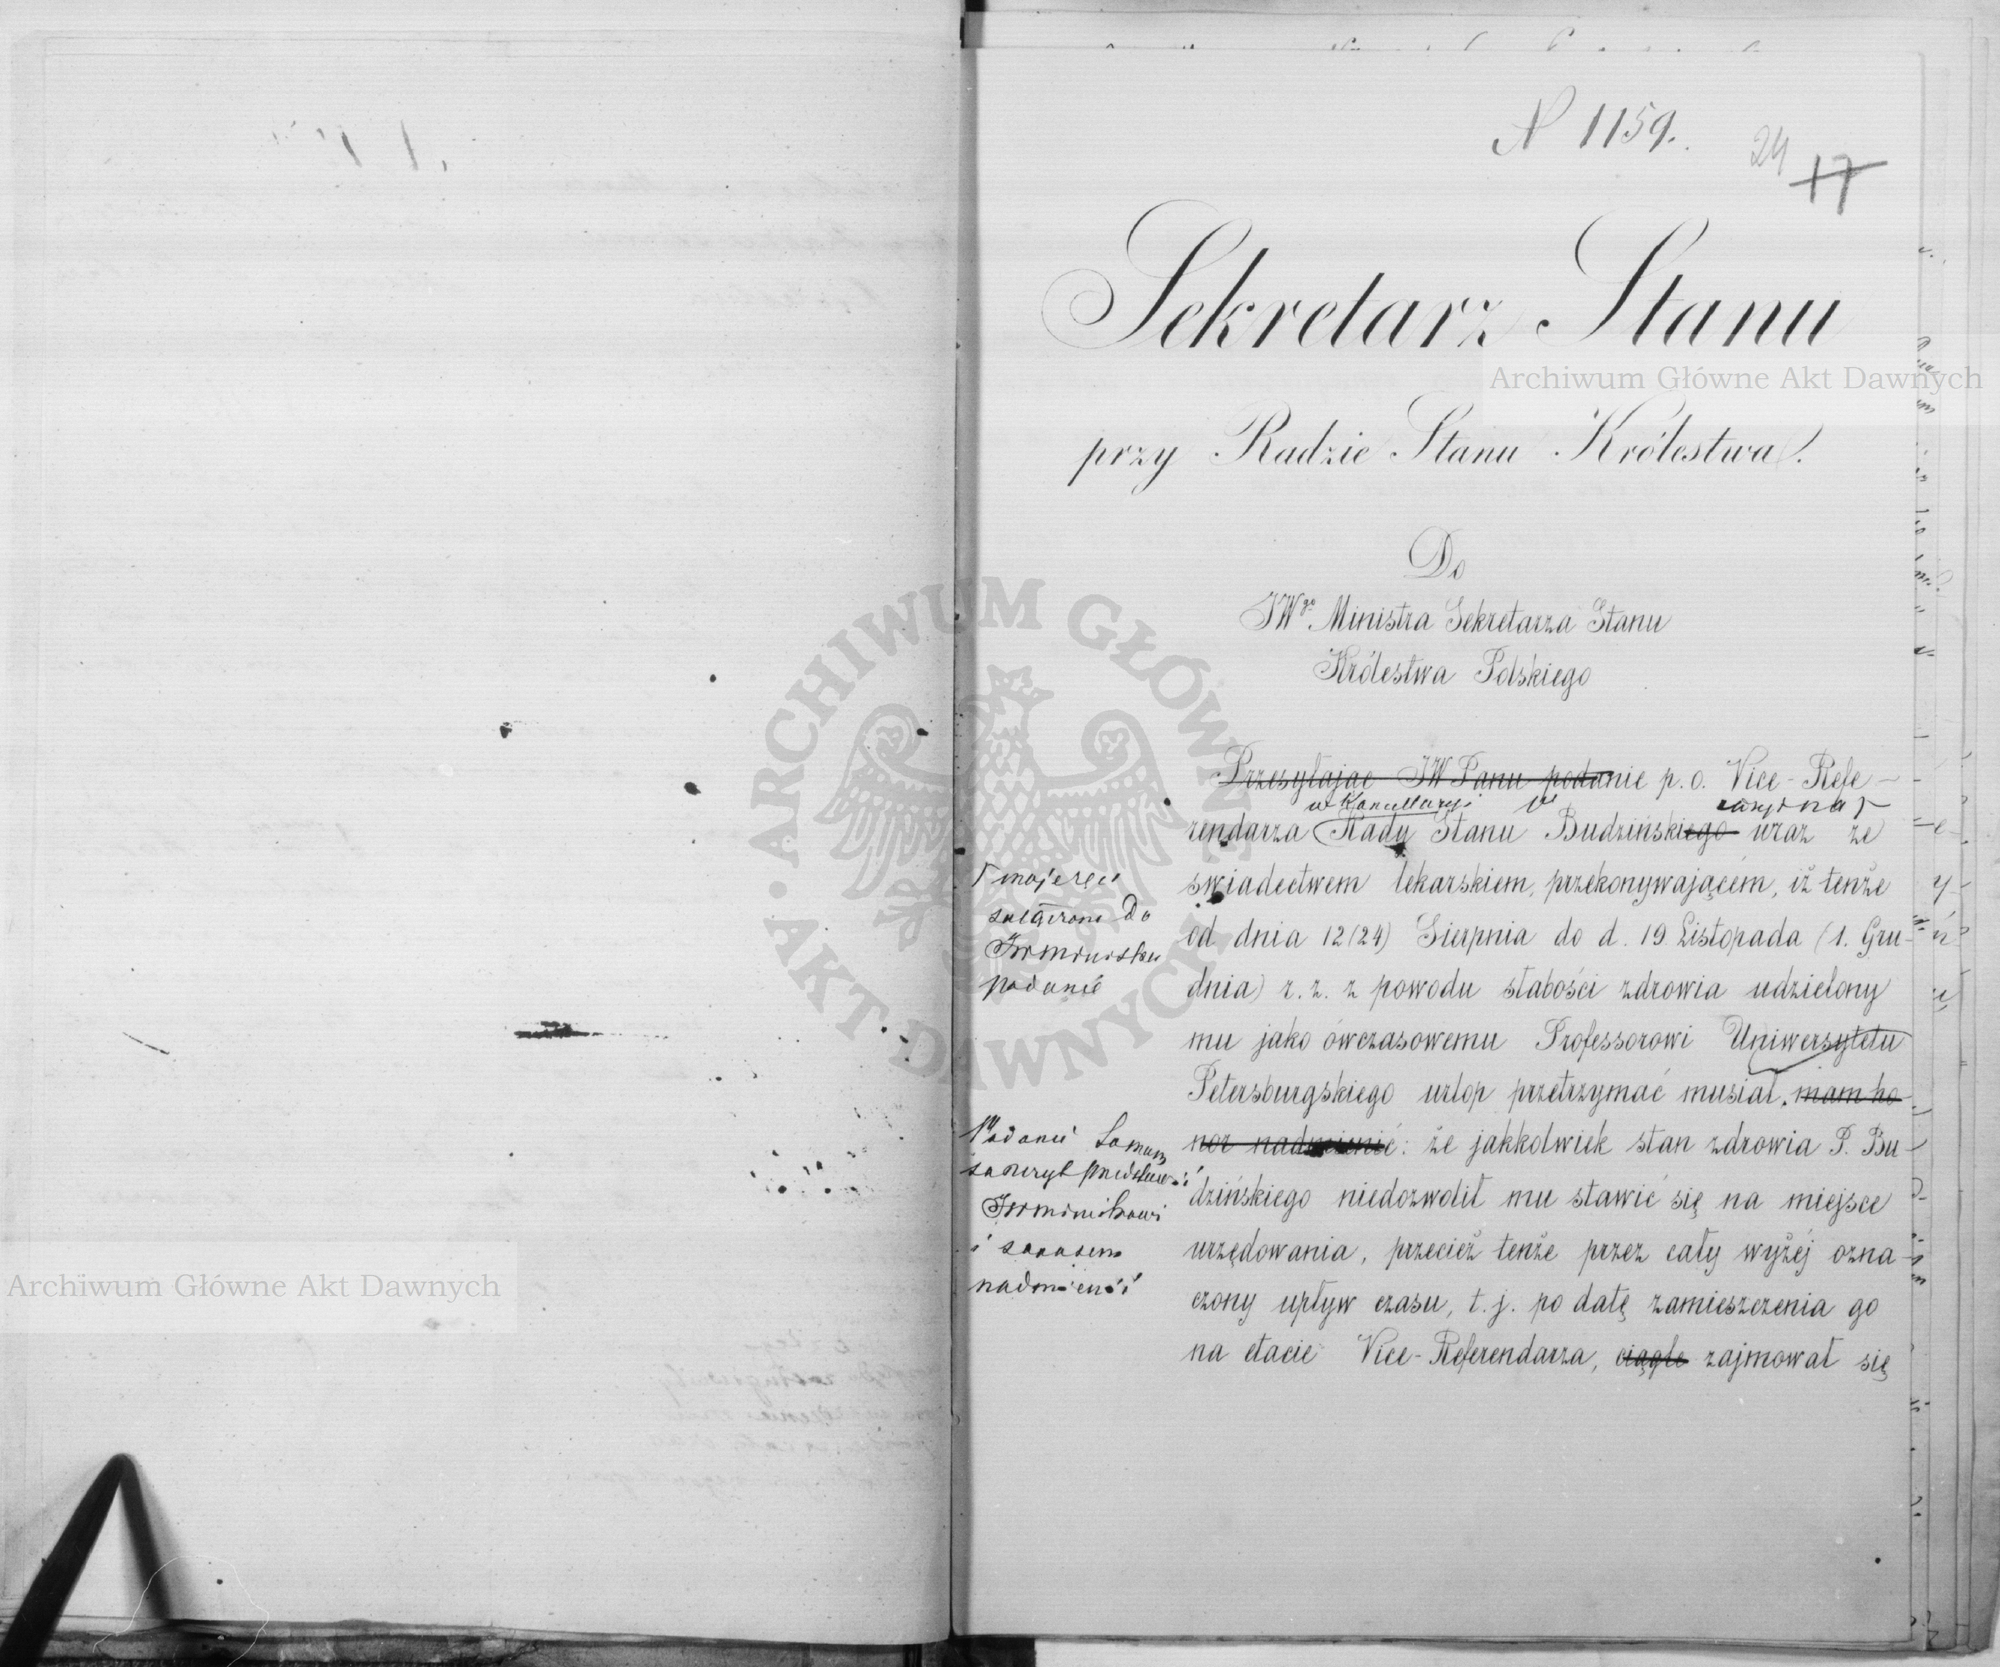 N 1159.
24
17
Sekretarz Stanu
przy Radzie Stanu Królestwa.
Do
JWgo Ministra Sekretarza Stanu
Królestwa Polskiego
Przesyłając JW Panu podanie p. o. Vice-Refe-
w Kancellaryi
rendarza Rady Stanu Budzińskiego wraz ze
świadectwem lekarskiem, przekonywającém, iż tenże
od dnia 12 (24) Sierpnia do d. 19 Listopada (1. Gru-
dnia) r. z. z powodu słabości zdrowia udzielony
mu jako ówczasowemu Professorowi Uniwersytetu
Petersburgskiego urlop przetrzymać musiał, mam ho-
nor nadmienić: że jakkolwiek stan zdrowia P. Bu-
dzińskiego niedozwolił mu stawić się na miejsce
urzędowania, przecież tenże przez cały wyżéj ozna-
czony upływ czasu, t. j. po datę zamieszczenia go
na etacie Vice-Referendarza, ciągle zajmował się
podanie
Podanie
nadmienić
Archiwum Główne Akt Dawnych
Archiwum Główne Akt Dawnych
ARCHIWUM GŁÓWNE AKT DAWNYCH